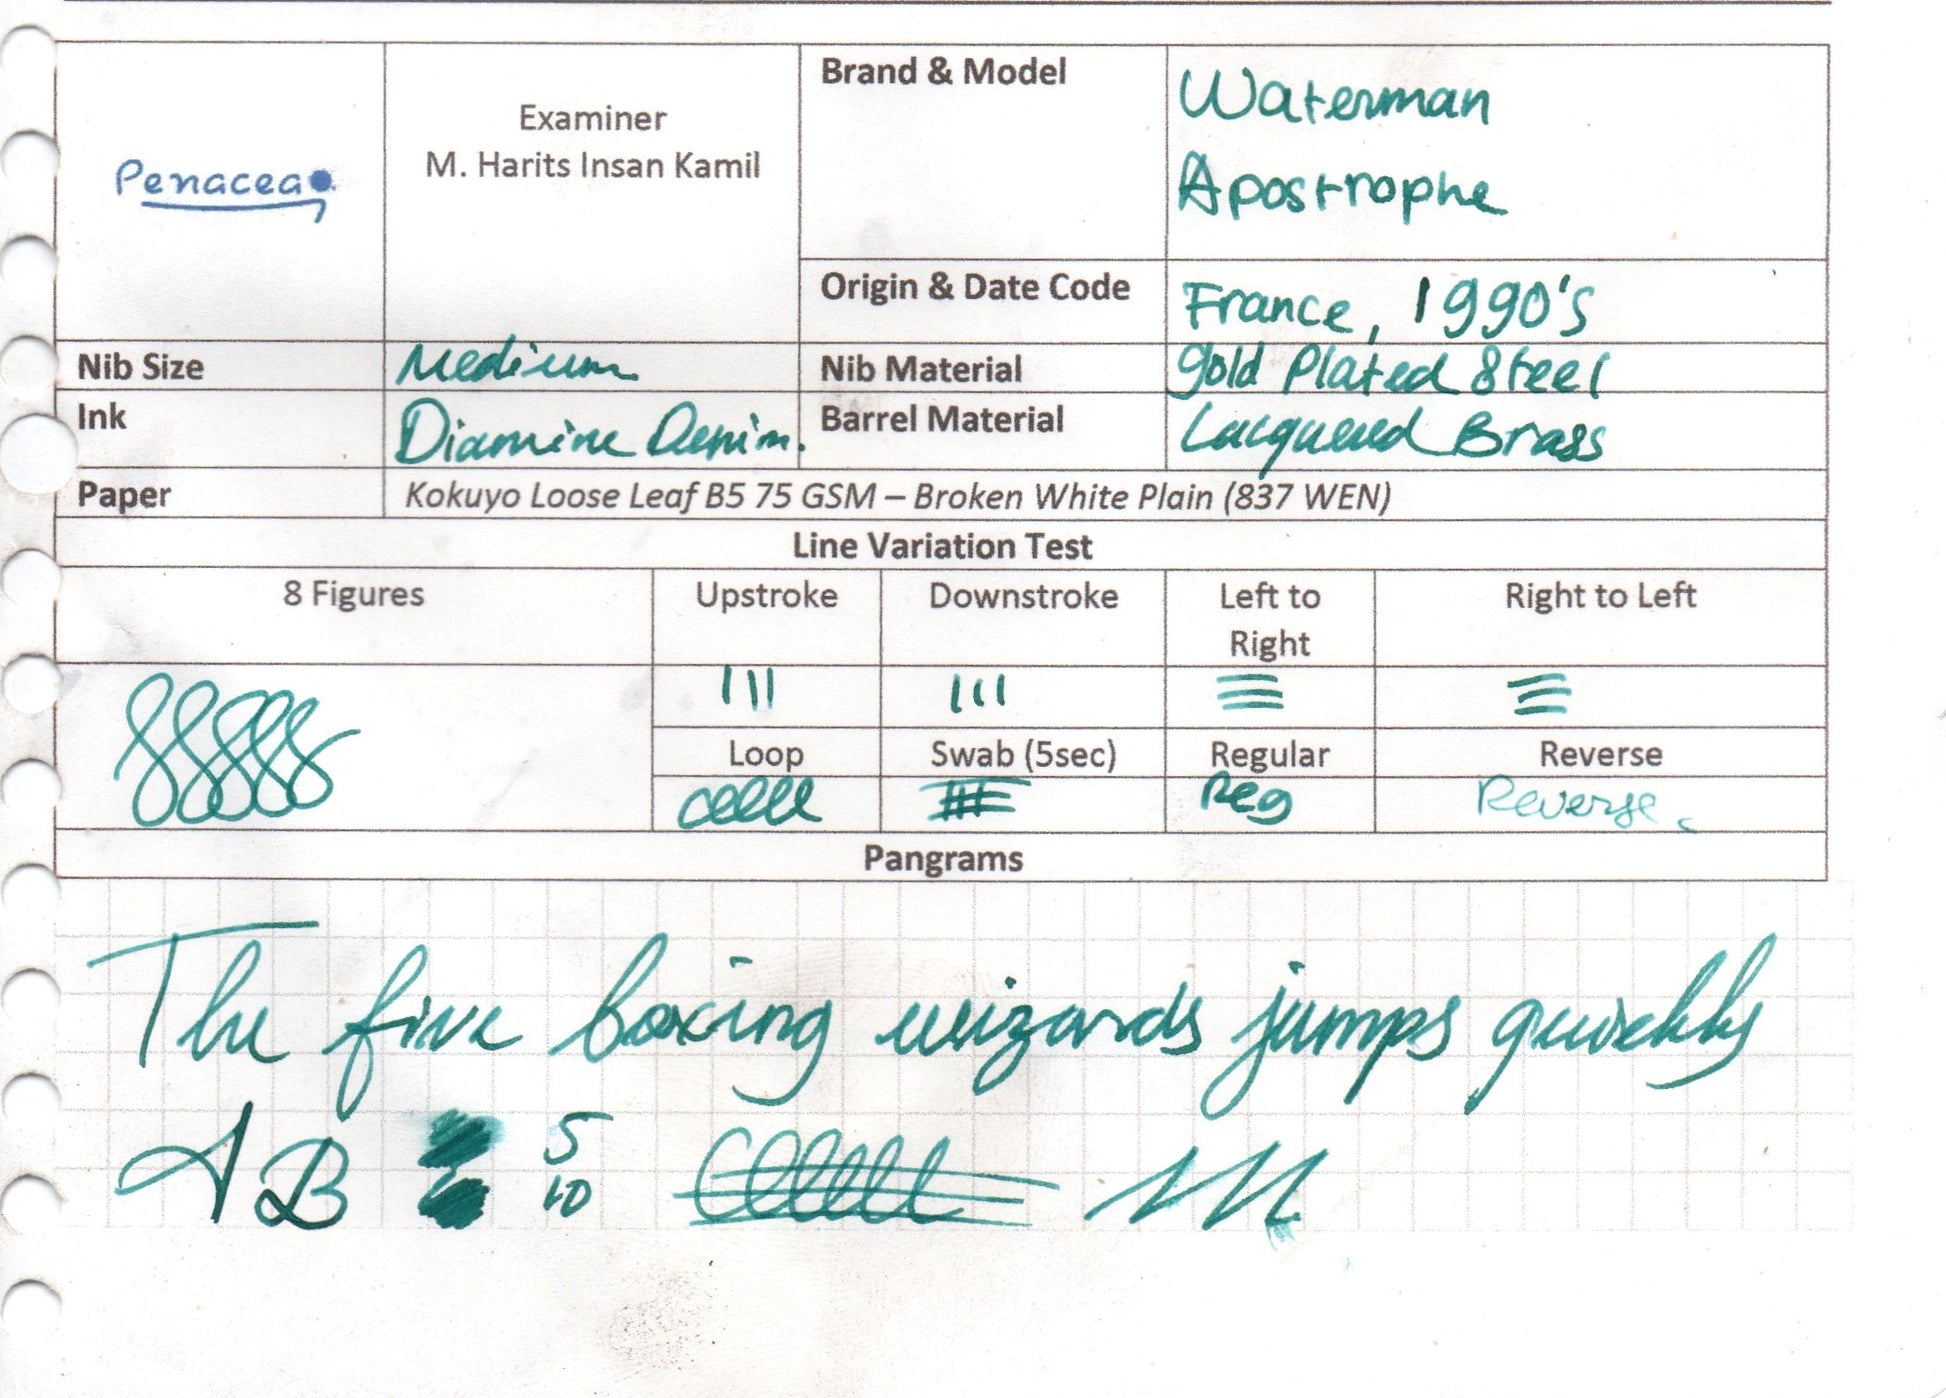 Penacea
Examiner
M. Harits Insan Kamil
Brand & Model
Waterman
Apostrophe
Origin & Date Code
France, 1990's
Nib Size
Medium
Nib Material
gold Plated Steel
Ink
Diamine Denim.
Barrel Material
Lacquered Brass
Paper
Kokuyo Loose Leaf B5 75 GSM – Broken White Plain (837 WEN)
Line Variation Test
8 Figures
Upstroke
Downstroke
Left to
Right
Right to Left
Loop
Swab (5sec)
Regular
Reverse
Reg
Reverse.
Pangrams
The five boxing wizards jumps quickly
A B
5
10